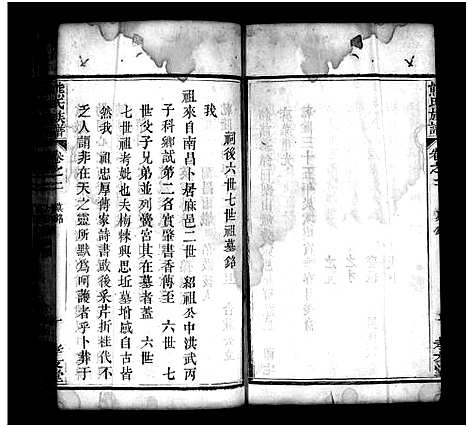 祠後六世七世祖墓銘
我
祖來自南昌卜居麻邑二世 紹祖公中洪武丙
子科鄉試第二名實肇書香傳至 六世 七
世父子兄弟並列黌宮其在墓者蓋 六世
七世祖考妣也夫梅棘興思近墓增感自古皆
然我 祖忠厚傳家詩書啟後采芹折桂代不
乏人謂非在天之靈所默為呵護者乎卜葬于
熊氏族譜
卷之二
墓銘
一
孝友堂
熊氏族譜
卷之二
孝友堂